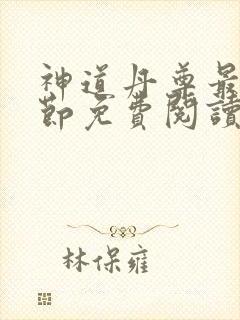 神道丹尊最
節免費閱讀
林保雍